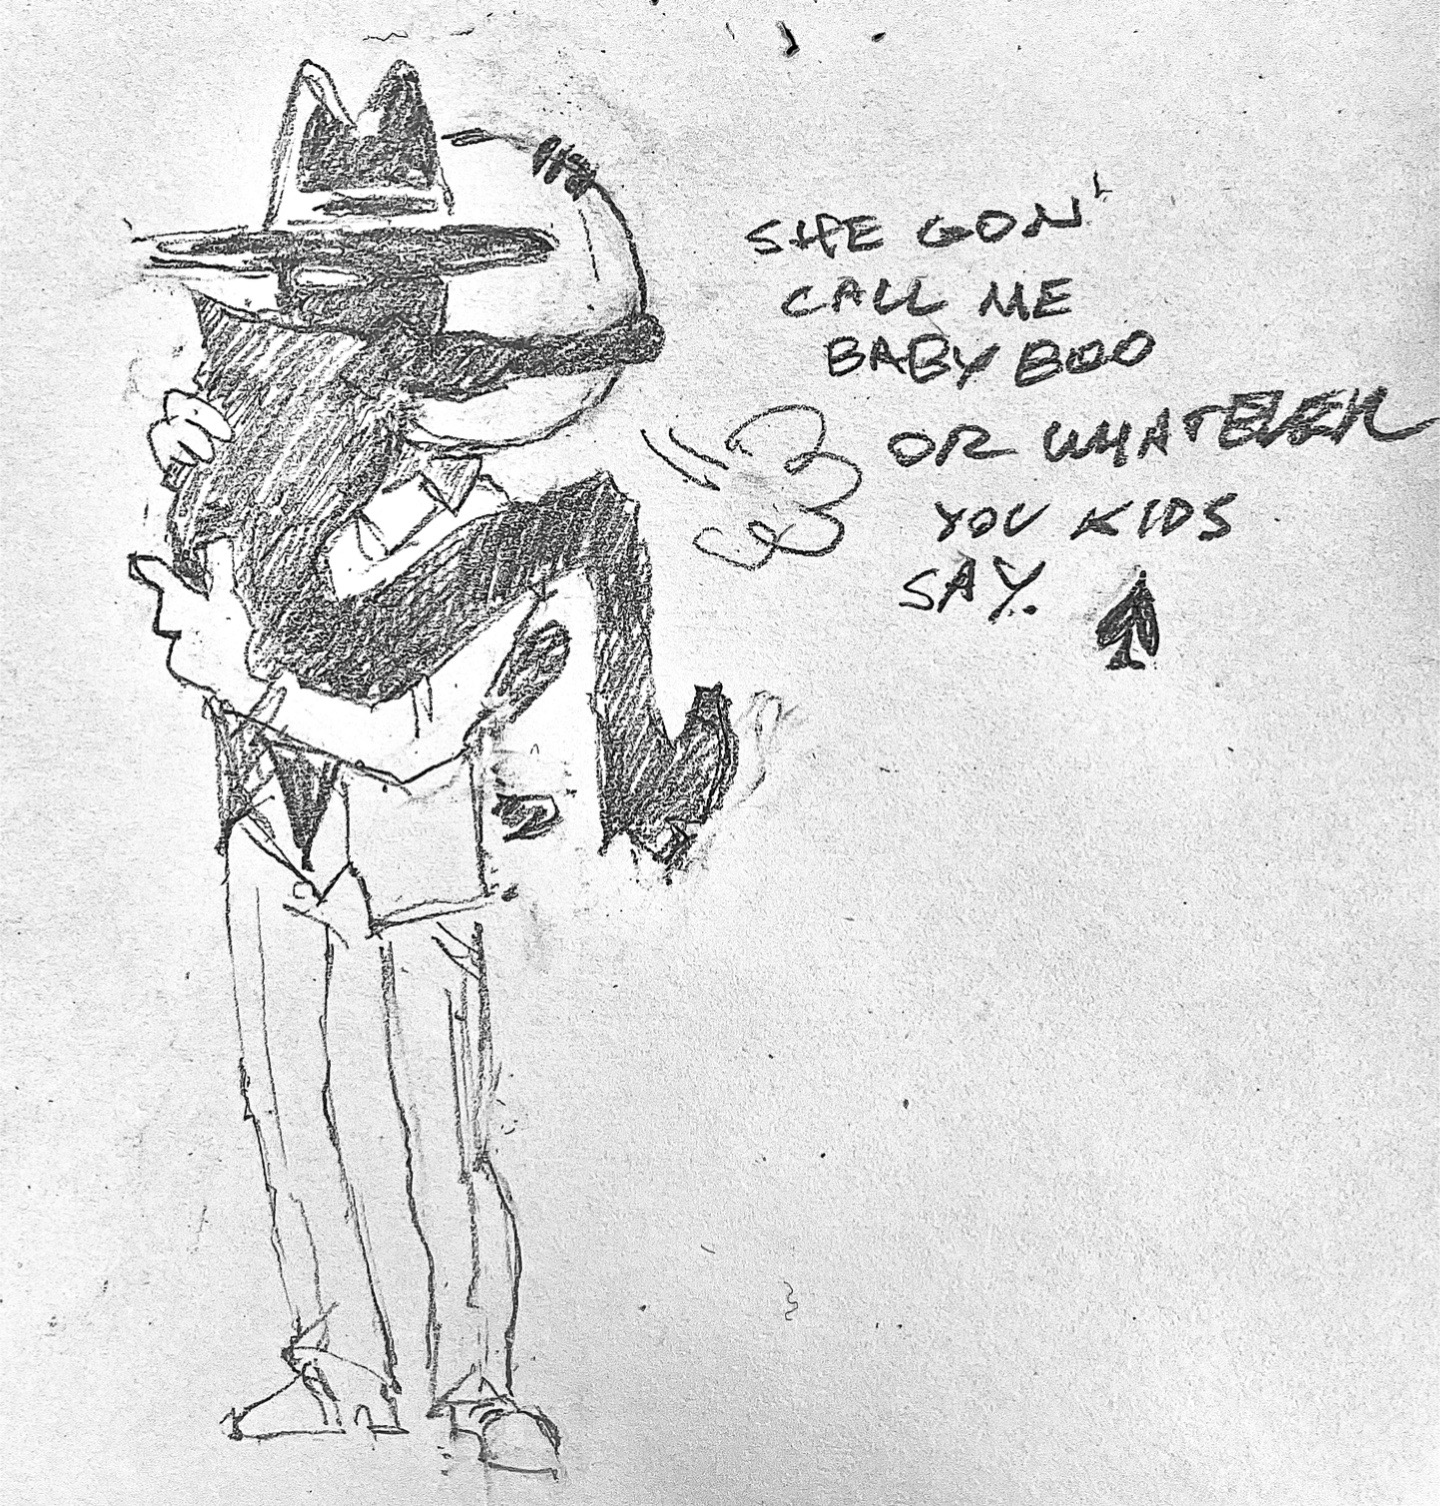 SHE GON'
CALL ME
BABY BOO
OR WHATEVER
YOU KIDS
SAY.